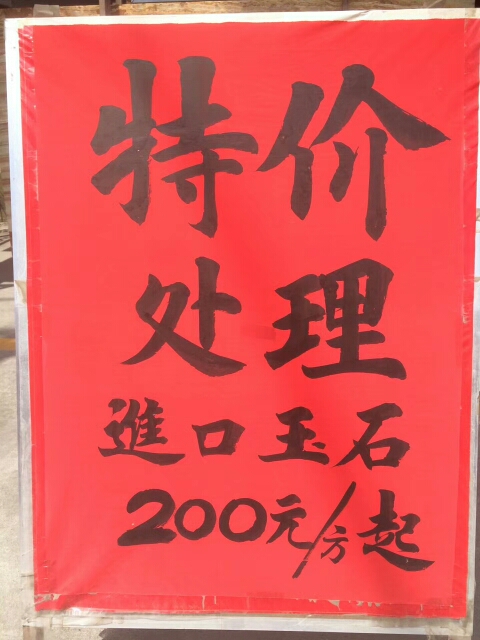 特价
处理
進口玉石
200元/方起